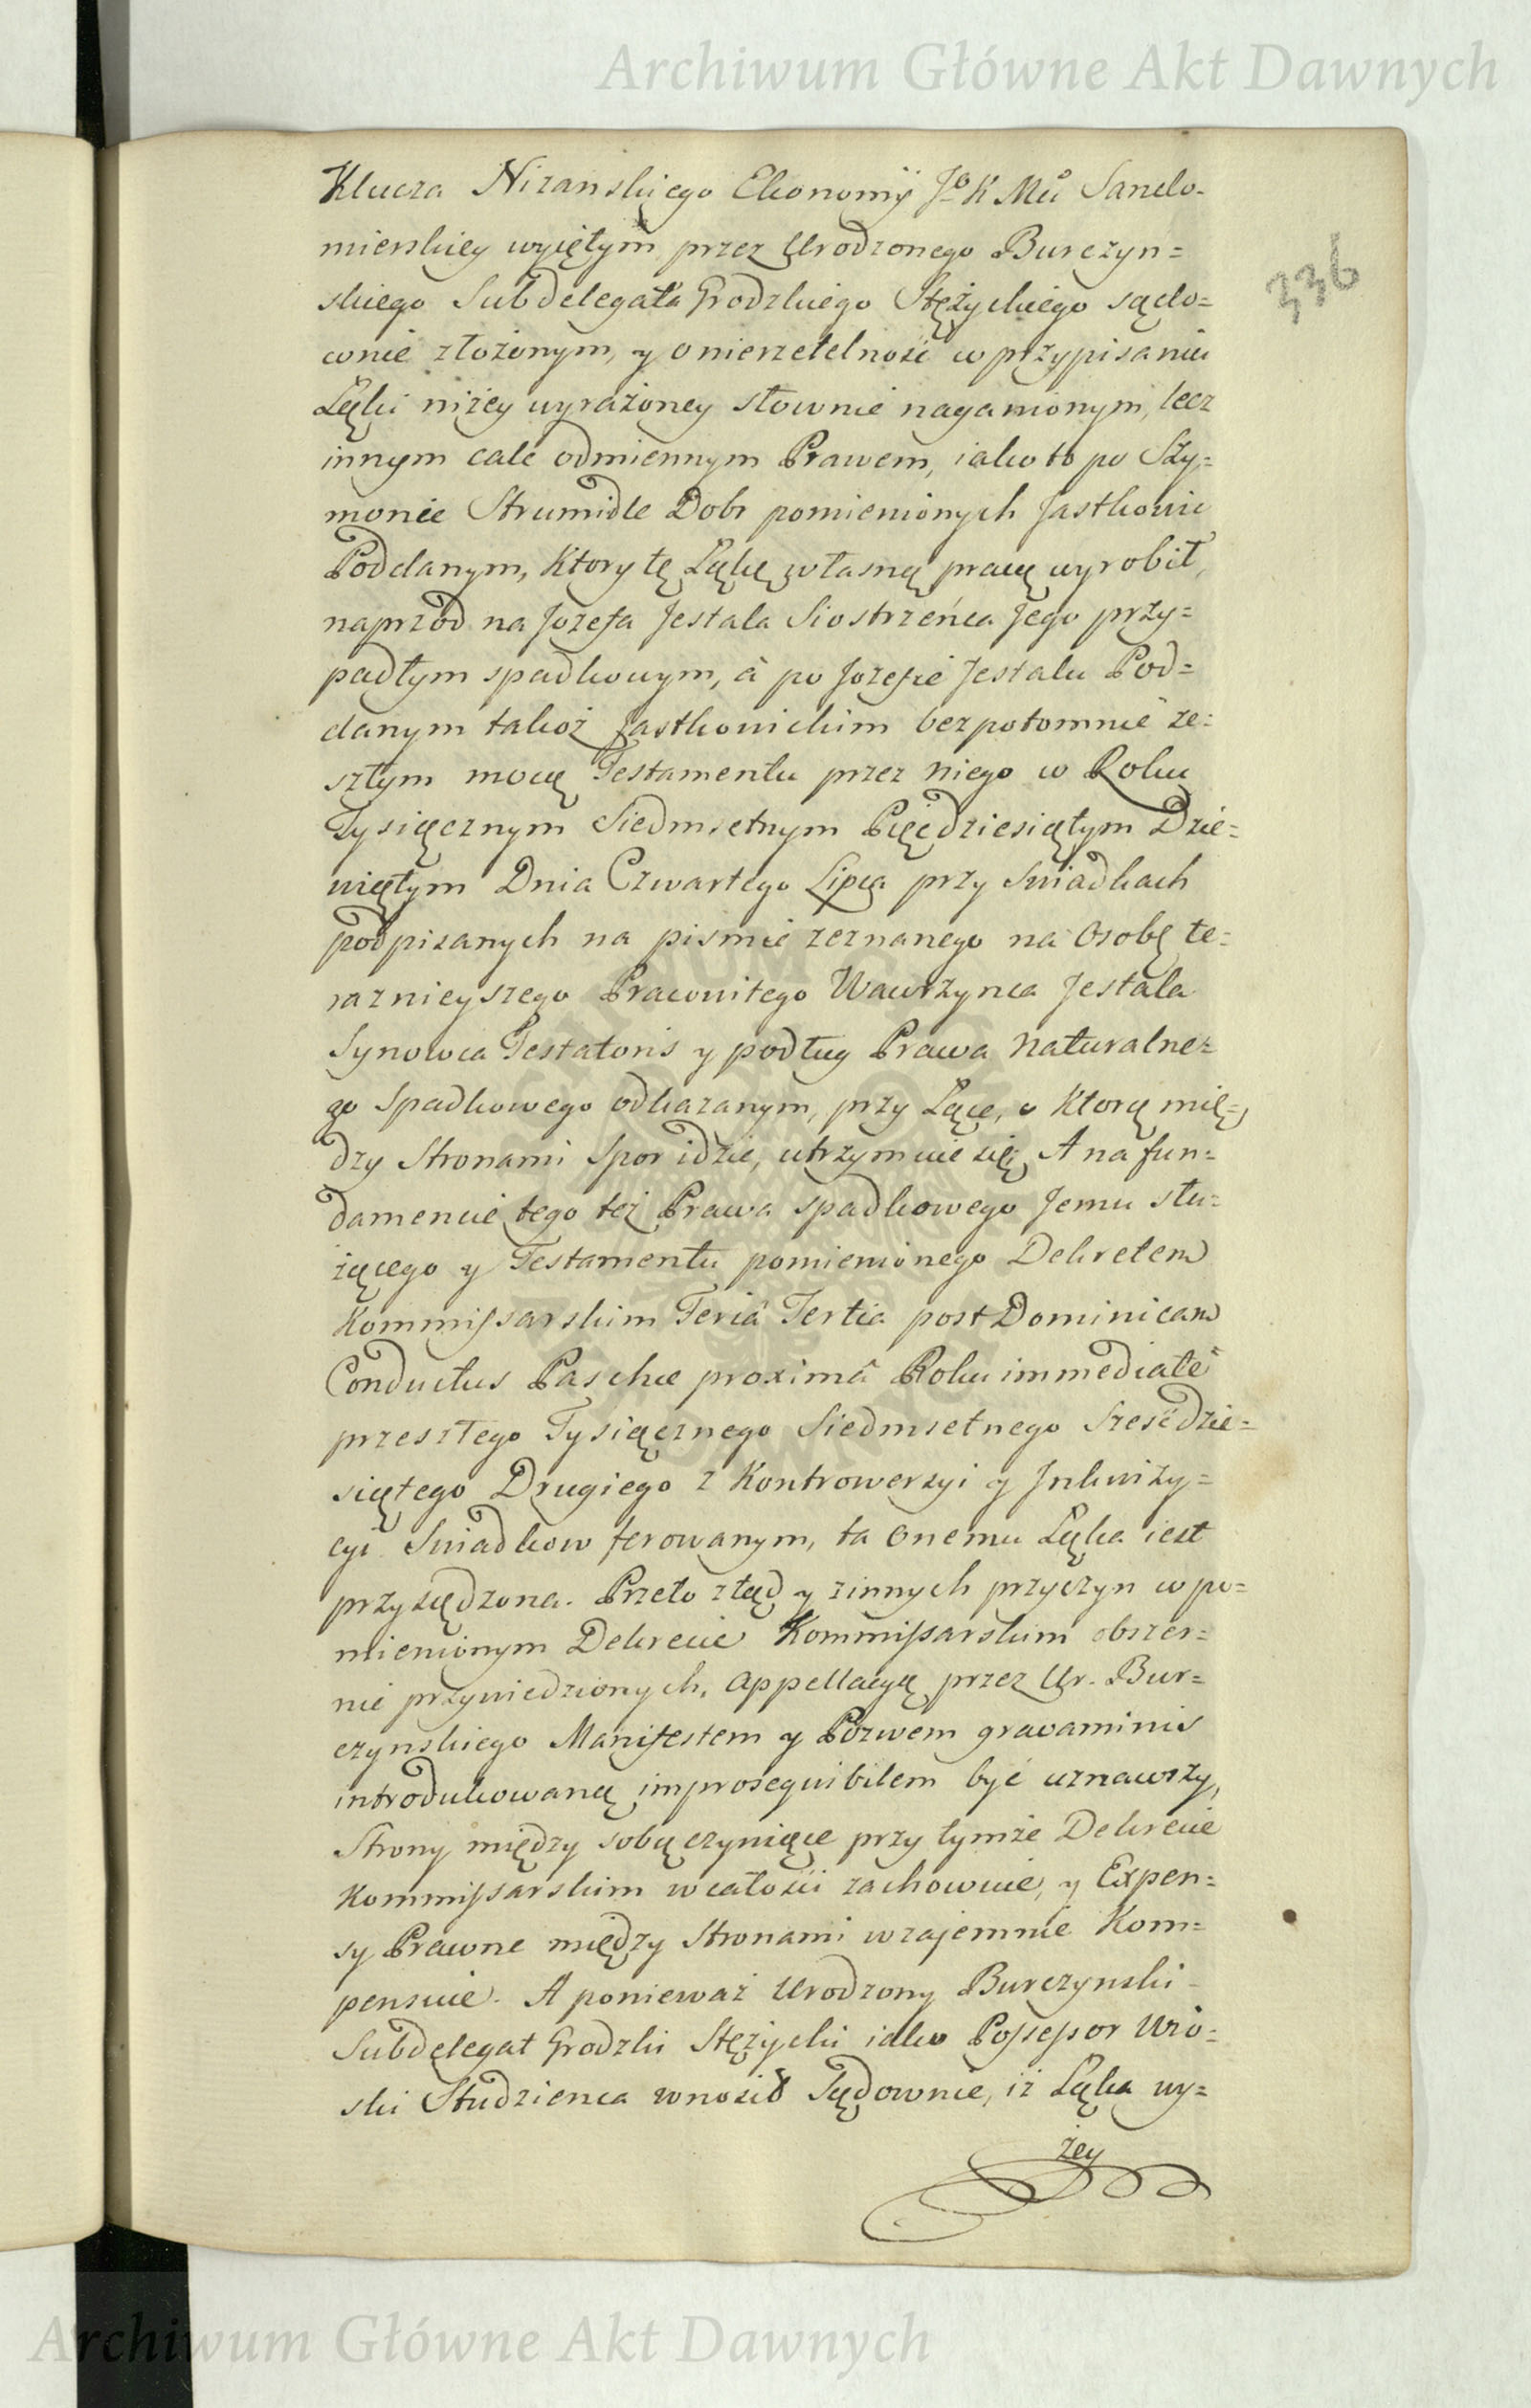 Archiwum Główne Akt Dawnych
Klucza Nizanskiego Ekonomij Jo K Mci Sando-
mierskiey wyiętym przez Urodzonego Burczyn=
skiego Subdelegata Grodzkiego Stężyckiego sądo=
wnie złożonym, y o nierzetelność w przypisaniu
Łąki niżey wyrażoney słownie naganionym, lecz
innym cale odmiennym Prawem, iako to po Szy=
monie Strumidle Dobr pomienionych Jastkowic
Poddanym, Ktory tę Łąkę własną pracą wyrobił,
naprzod na Jozefa Jestala Siostrzeńca Jego przy=
padłym spadkowym, á po Jozefie Jestalu Pod=
danym takoż Jastkowickim bezpotomnie ze=
szłym mocą Testamentu przez niego w Roku
Tysiącznym Siedmsetnym Pięćdziesiątym Dzie=
wiątym Dnia Czwartego Lipca przy Swiadkach
podpisanych na pismie zeznanego na Osobę te=
raznieyszego Pracowitego Wawrzynca Jestala
Synowca Testatoris y podług Prawa Naturalne=
go Spadkowego odkazanym, przy Łące, o Ktorą mię=
dzy Stronami Spor idzie, utrzymuie się, A na fun=
damencie tego też Prawa spadkowego Jemu słu=
żącego y Testamentu pomienionego Dekretem
Kommissarskim Feriâ Tertia post Dominicam
Conductus Paschæ proximâ Roku immediatè
przeszłego Tysiącznego Siedmsetnego Sześćdzie=
siątego Drugiego z Kontrowersyi y Inkwizy=
cyi Swiadkow ferowanym, ta Onemu Łąka iest
przysądzona. Przeto ztąd y zinnych przyczyn w po=
mienionym Dekrecie Kommissarskim obszer=
nie przywiedzionych, Appellacyą przez Ur. Bur=
czynskiego Manifestem y Pozwem gravaminis
introdukowaną improsequibilem być uznawszy,
Strony między sobą czyniące przy tymże Dekrecie
Kommissarskim wcałości zachowuie, y Expen=
sy Prawne między Stronami wzajemnie Kom=
pensuie. A ponieważ Urodzony Burczynski
Subdelegat Grodzki Stężycki iako Possessor Wio=
ski Studzienca wnosił Sądownie, iż Łąka wy=
żey
336
Archiwum Główne Akt Dawnych